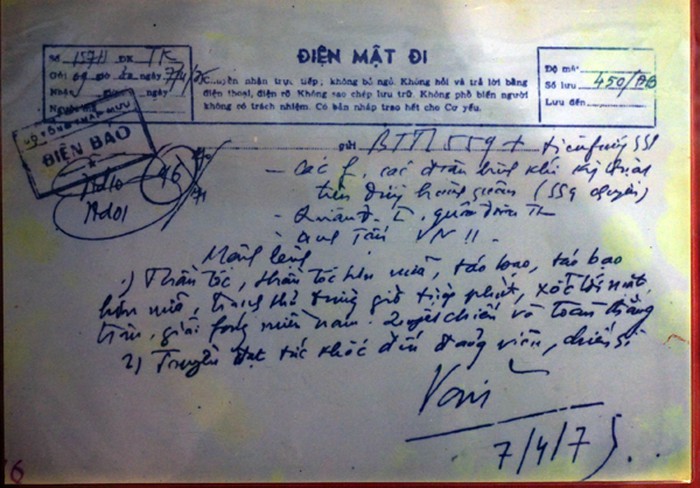 ĐIỆN MẬT ĐI
Số 157H ĐK TK
Gởi giờ ngày 7/4/75
Nhận giờ ngày
Người
Chuyển nhận trực tiếp; không bỏ ngỏ. Không hỏi và trả lời bằng
điện thoại, điện rõ. Không sao chép lưu trữ. Không phổ biến người
không có trách nhiệm. Có bản nháp trao hết cho Cơ yếu.
Độ mật
Số lưu 450/ĐB
Lưu đến
BỘ TỔNG THAM MƯU
ĐIỆN BÁO
46
gửi BTTL 559 + tiền phương 559
- Các f, các đơn binh khí kỹ thuật
trên đường hành quân (559 chuyển)
- Quân đ. I, quân đoàn
Mệnh lệnh
1) Thần tốc, thần tốc hơn nữa, táo bạo, táo bạo
hơn nữa, tranh thủ từng giờ từng phút, xốc tới mặt
trận, giải fóng miền nam. Quyết chiến và toàn thắng
2) Truyền đạt tức khắc đến đảng viên, chiến sĩ
Văn
7/4/75